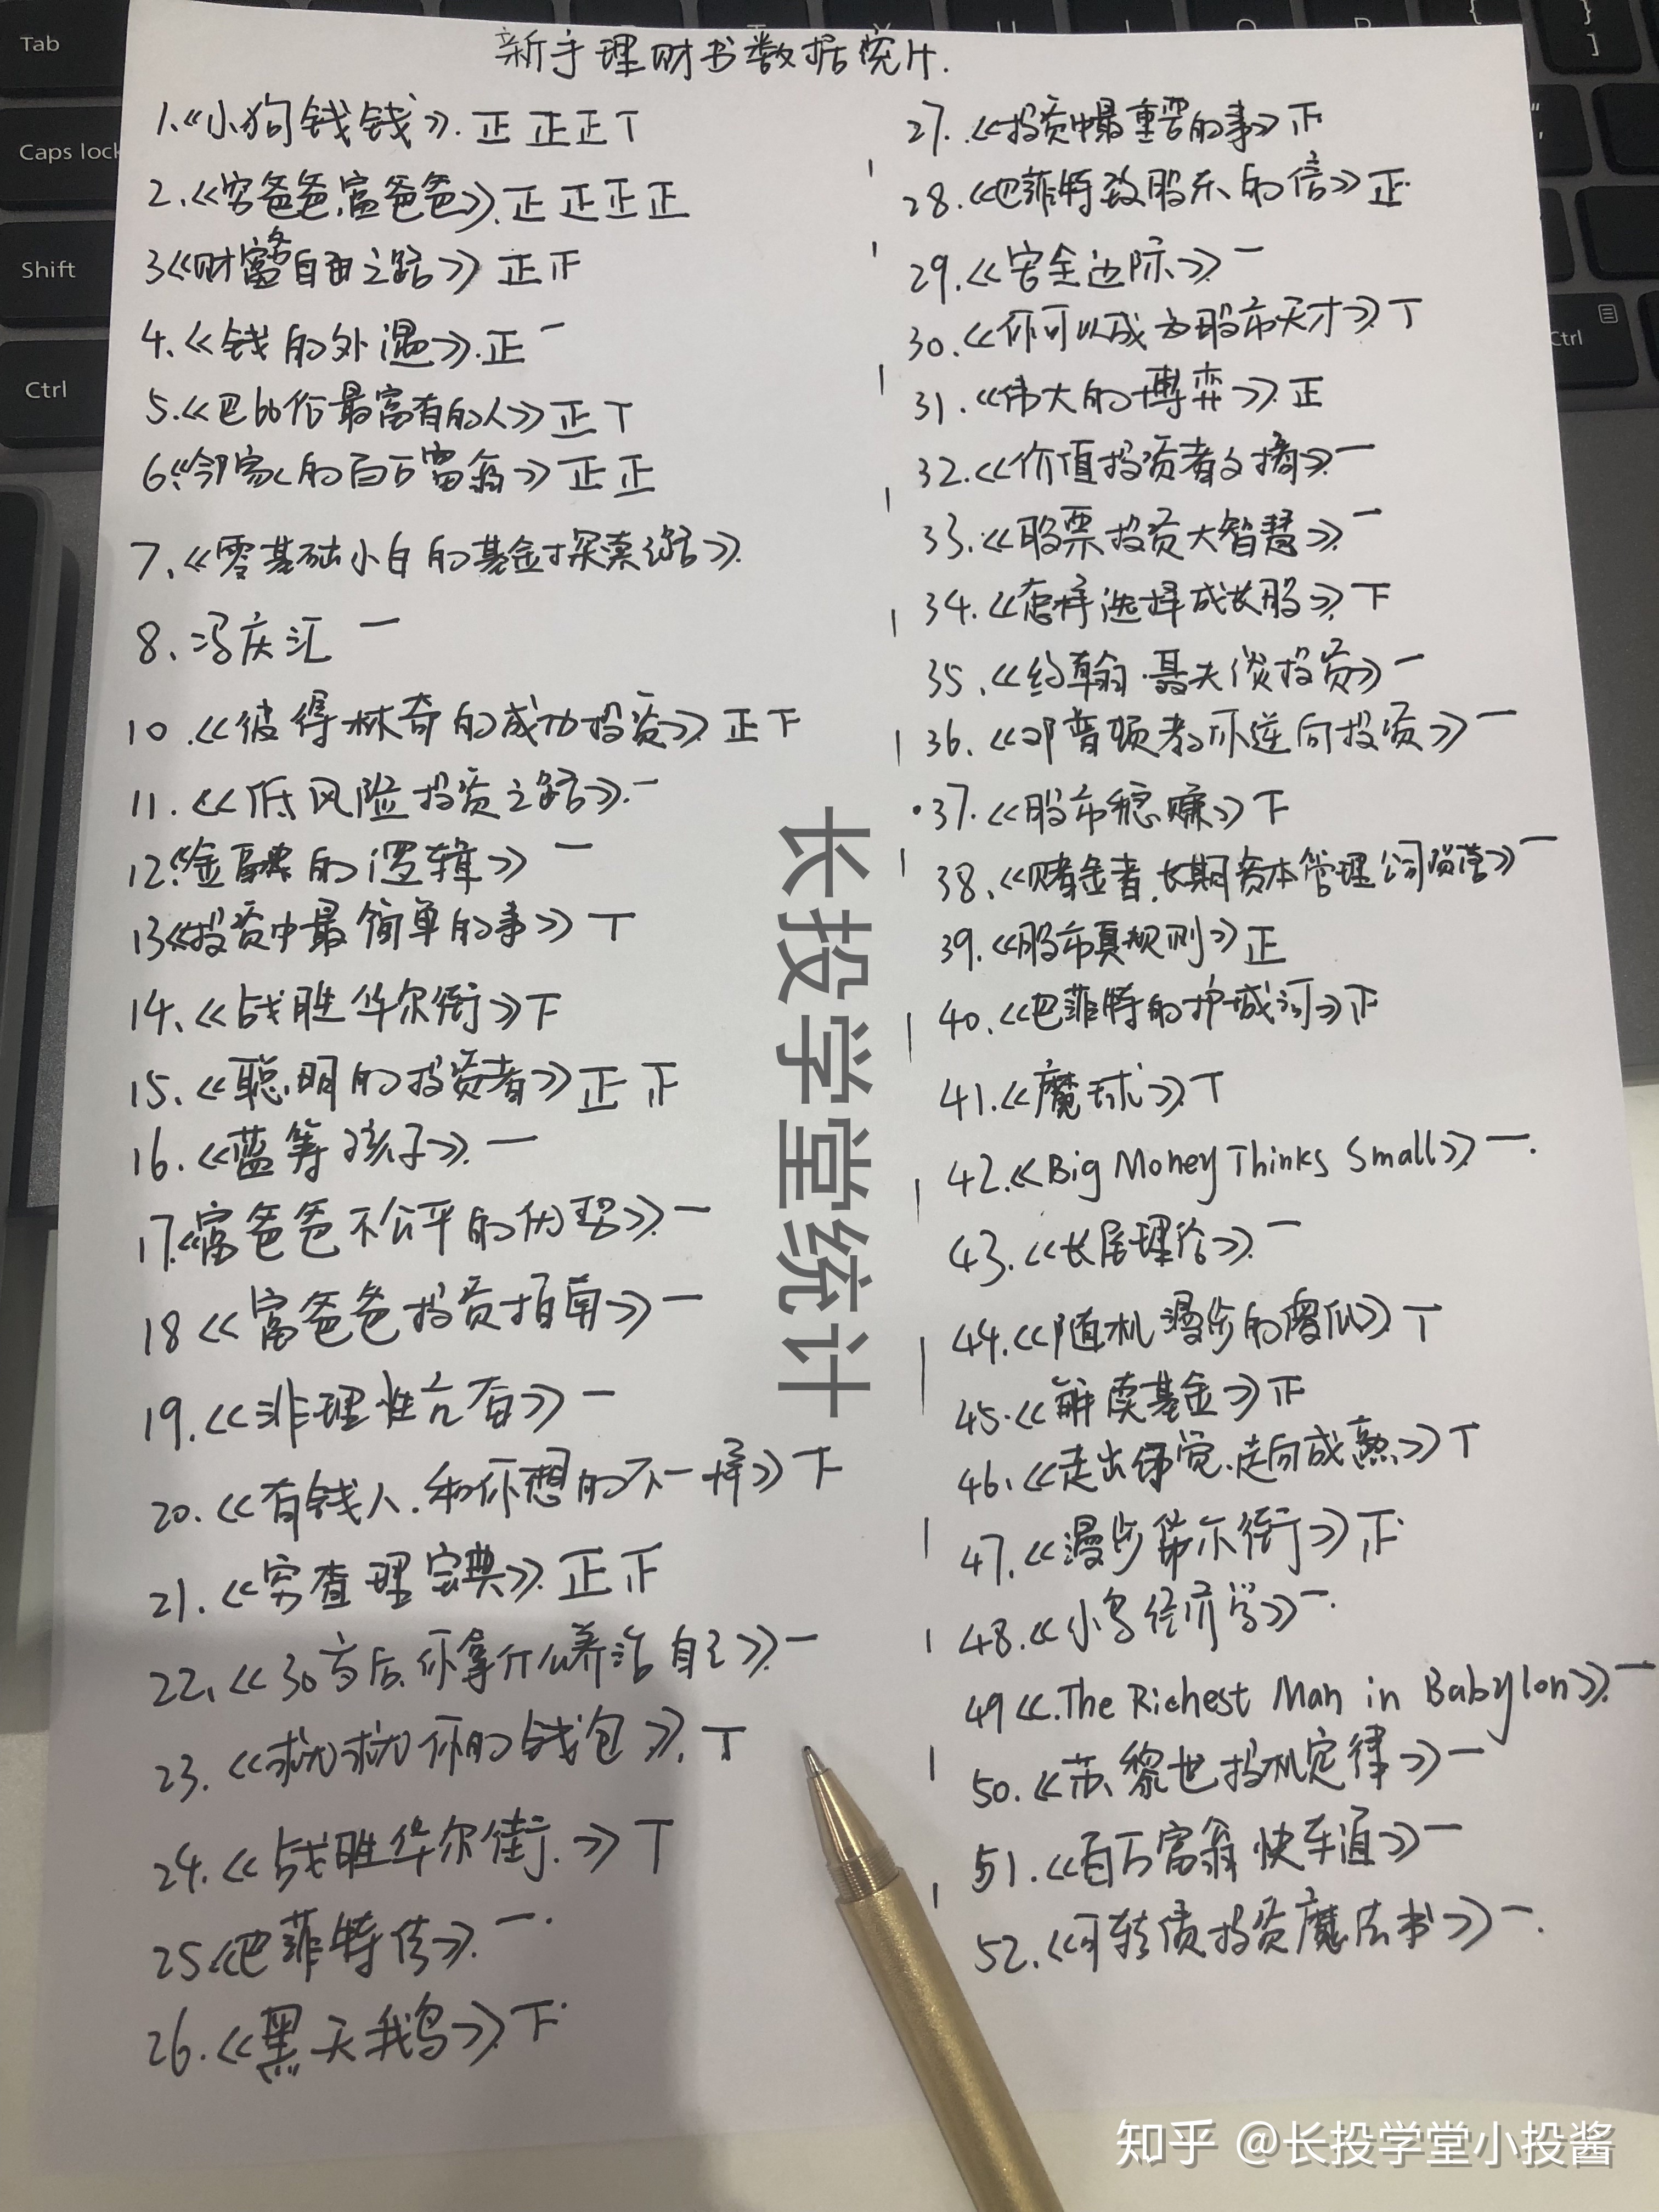 新手理财书数据统计.
1.《小狗钱钱》. 正 正 正 丅
2.《穷爸爸,富爸爸》. 正 正 正 正
3《财富自由之路》 正 正
4.《钱的外遇》. 正 一
5.《巴比伦最富有的人》 正 丅
6.《邻家的百万富翁》 正 正
7.《零基础小白的基金探索路》.
8. 冯庆汇 一
10.《彼得林奇的成功投资》 正 下
11.《低风险投资之路》. 一
12.《金融的逻辑》 一
13《投资中最简单的事》 丅
14.《战胜华尔街》 下
15.《聪明的投资者》 正 正
16.《蓝筹孩子》. 一
17.《富爸爸不公平的优势》 一
18《富爸爸投资指南》 一
19.《非理性亢奋》 一
20.《有钱人,和你想的不一样》 下
21.《穷查理宝典》. 正 正
22.《30岁后,你拿什么养活自己》 一
23.《救救你的钱包》. 丅
24.《战胜华尔街.》 丅
25.《巴菲特传》. 一.
26.《黑天鹅》 下
27.《投资中最重要的事》 正
28.《巴菲特致股东的信》 正
29.《安全边际》 一
30.《你可以成为股市天才》 丅
31.《伟大的博弈》 正
32.《价值投资者文摘》. 一
33.《股票投资大智慧》. 一
34.《怎样选择成长股》 下
35.《约翰·聂夫谈投资》 一
36.《邓普顿教你逆向投资》 一
37.《股市稳赚》 下
38.《赌金者,长期资本管理公司陨落》 一
39.《股市真规则》 正
40.《巴菲特的护城河》 正
41.《魔球》. 丅
42.《Big Money Thinks Small》 一.
43.《长尾理论》. 一
44.《随机漫步的傻瓜》 丅
45.《解读基金》 正
46.《走出幻觉,走向成熟》 丅
47.《漫步华尔街》 正
48.《小岛经济学》 一.
49《The Richest Man in Babylon》. 一
50.《苏黎世投机定律》 一
51.《百万富翁快车道》 一
52.《可转债投资魔法书》 一.
长投学堂统计
知乎 @长投学堂小投酱
Tab
Caps lock
Shift
Ctrl
Ctrl